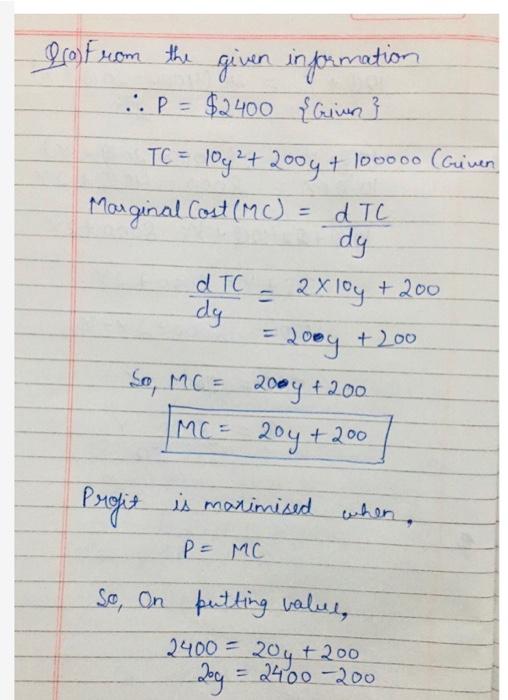 Q(a) From the given information
∴ P = $2400 {Given}
TC = 10y² + 200y + 100000 (Given
Marginal Cost (MC) = d TC
dy
d TC = 2 × 10y + 200
dy
= 20y + 200
So, MC = 20y + 200
MC = 20y + 200
Profit is maximised when,
P = MC
So, On putting value,
2400 = 20y + 200
20y = 2400 - 200